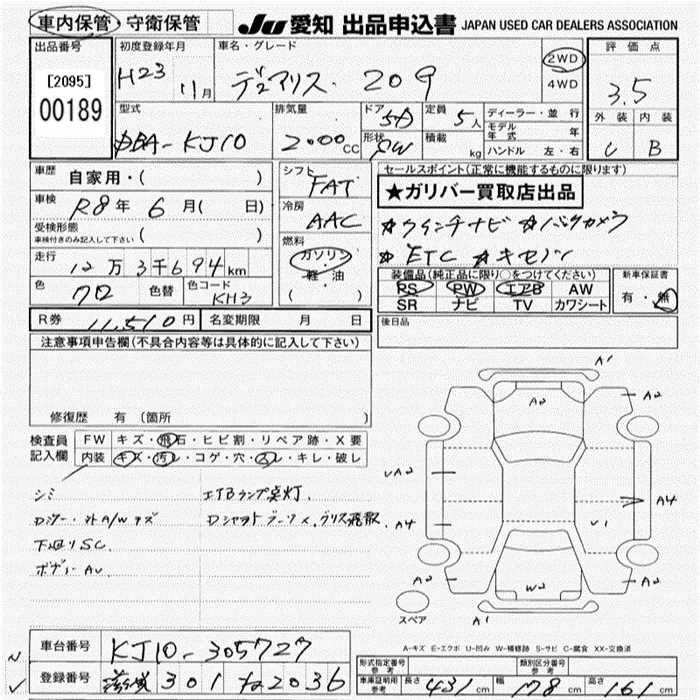 車内保管・守衛保管
JU 愛知 出品申込書 JAPAN USED CAR DEALERS ASSOCIATION
出品番号
[2095]
00189
初度登録年月
H23 11月
車名・グレード
デュアリス 20G
2WD
4WD
評価点
3.5
外装 内装
C B
型式
DBA-KJ10
排気量
2000cc
ドア 5D
形状 SW
定員 5人
積載 kg
ディーラー・並行
モデル年式 年
ハンドル 左・右
車歴
自家用・( )
車検
R8年 6月( 日)
受検形態
車検付きのみ記入して下さい ( )
走行
12万3千694km
色 クロ 色替 色コード KH3
シフト
FAT
冷房
AAC
燃料
ガソリン
・
軽・油
( )
セールスポイント(正常に機能するものに限ります)
★ガリバー買取店出品
☆ツインチナビ ☆バックカメラ
☆ETC ☆キセノン
装備品(純正品に限り○をつけてください)
PS PW エアB AW
SR ナビ TV カワシート
新車保証書
有・無
R券 11,510円 名変期限 月 日
後日品
注意事項申告欄(不具合内容等は具体的に記入して下さい)
修復歴 有 (箇所 )
検査員記入欄
FW キズ・飛石・ヒビ割・リペア跡・X要
内装 キズ・汚レ・コゲ・穴・スレ・キレ・破レ
シミ エアBランプ点灯.
Dシャフトブーツ×、グリス飛散
下廻りSC
ボディーAU
A1
A2
A2
UA2
A4
A4
U1
A2
W2
A2
A1
スペア
A-キズ E-エクボ U-凹み W-補修跡 S-サビ C-腐食 XX-交換済
車台番号 KJ10-305727
登録番号 滋賀 301 な 2036
型式指定番号 参考
類別区分番号 参考
車庫証明用 参考
長さ 431cm 幅 178cm 高さ 161cm